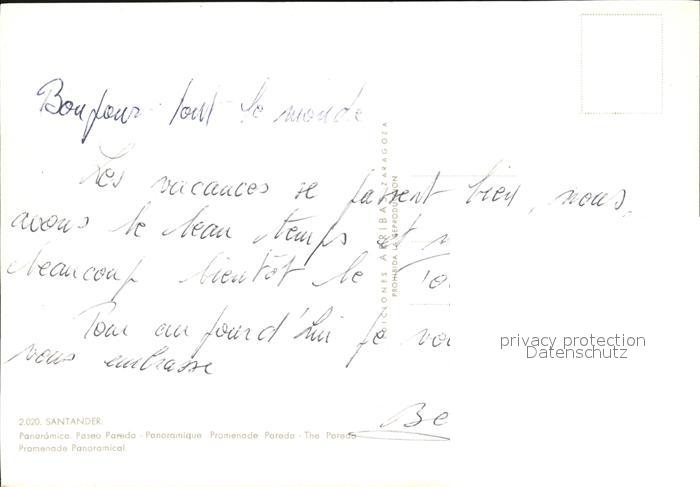 Bonjour tout le monde
Les vacances se passent bien, nous
avons le beau temps et
beaucoup bientôt le
Pour aujourd'hui je
vous embrasse
EDICIONES ARRIBAS ZARAGOZA
PROHIBIDA LA REPRODUCCION
privacy protection
Datenschutz
2.020. SANTANDER.
Panorámica. Paseo Pareda - Panoramique Promenade Pareda - The Pareda
Promenade Panoramical.